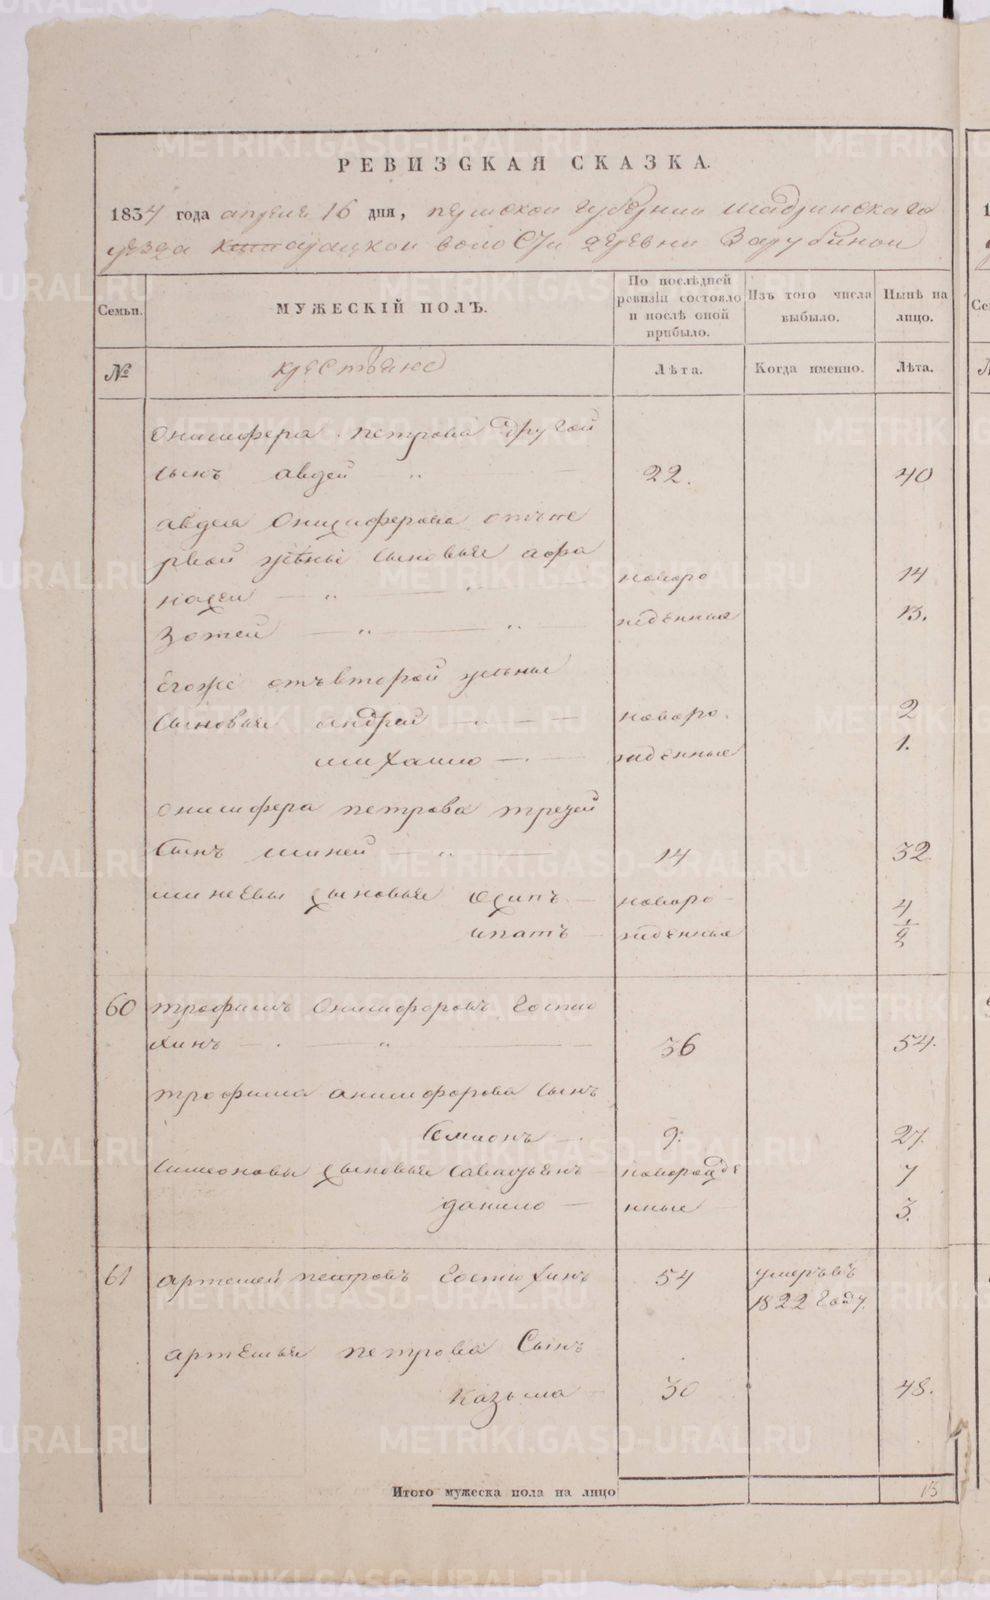 РЕВИЗСКАЯ СКАЗКА.
1834 года апреля 16 дня, пермской губернии шадринскаго
уезда волости деревни Зарубиной
Семьи. МУЖЕСКІЙ ПОЛЪ. По послѣдней ревизіи состояло и послѣ оной прибыло. Изъ того числа выбыло. Нынѣ на лицо.
№ крестьяне Лѣта. Когда именно. Лѣта.
Онисифера петрова другой
сынъ авдей 22. 40
авдея Онисиферова отъ пе
рвой жены сыновья афа
насей новоро 14
Зотей жденныя 13.
Егоже отъ второй жены
сыновья андрей новоро. 2
михаило жденные 1.
Онисифера петрова третей
сынъ миней 14 32
минеевы сыновья осипъ новоро 4
ипатъ жденныя 1/2
60 трофимъ Онисифоровъ Гостю
хинъ 36 54.
трофима анисифорова сынъ
Симионъ 9. 27.
симеоновы сыновья савастьянъ новорожде 7
данило нные 3.
61 артемей петровъ Гостюхинъ 54 умеръ въ
1822 Году.
артемья петрова Сынъ
казьма 30 48.
Итого мужеска пола на лицо 13
METRIKI.GASO-URAL.RU